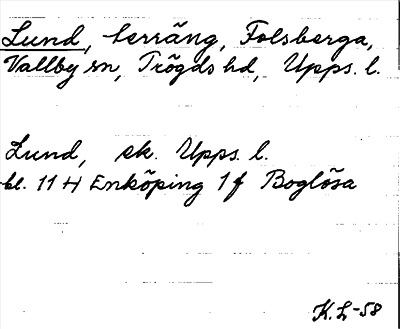 Lund, terräng, Folsberga,
Vallby sn, Trögds hd, Upps. l.
Lund, ek. Upps. l.
bl. 11 H Enköping 1 f Boglösa
K.L-58